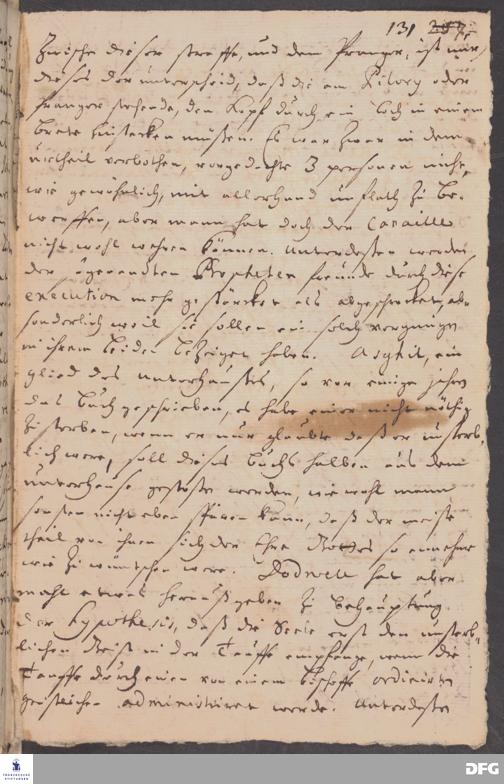 131 257
Zwische dieser straffe, und dem Pranger, ist nur
dieses der unterscheid, daß die am Pilory oder
Pranger stehende, den Kopf durch ein Loch in einem
Brete einstecken müßen. Es war zwar in dem
urtheil verbothen, vorgedachte 3 personen nicht,
wie gewöhnlich, mit allerhand unflath zu be-
werffen, aber mann hat doch der Canaille
nicht wohl wehren können. Unterdeßen werden
der sogenandten Propheten freunde durch diese
execution mehr gestärcket als abgeschrecket, ab-
sonderlich weil sie sollen ein solch vergnügen
in ihrem leiden bezeiget haben. Asghil, ein
glied des unterhauses, so vor einigen jahren
das Buch geschrieben, es habe einer nicht nöthig
zu sterben, wenn er nur glaubte daß er unsterb-
lich were, soll dieses Buchs halben aus dem
unterhause gestoßen werden, wiewohl mann
sonsten nicht eben spüren kann, daß der meiste
theil von ihnen sich der Ehre Gottes so annehme
wie zu wünschen were. Dodwell hat aber-
mahl etwas herausgeben zu behauptung
der Hypothesis, daß die Seele erst den unsterb-
lichen Geist in der Tauffe empfange, wenn die
Tauffe durch einen von einem Bischoffe ordinirten
geistlichen administriret werde. Unterdeßen
FRANCKESCHE
STIFTUNGEN
DFG